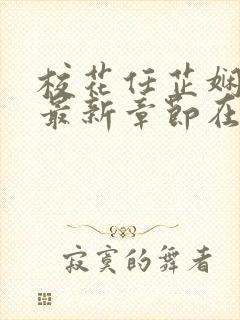 校花任芷娴
最新章节在
寂寞的舞者